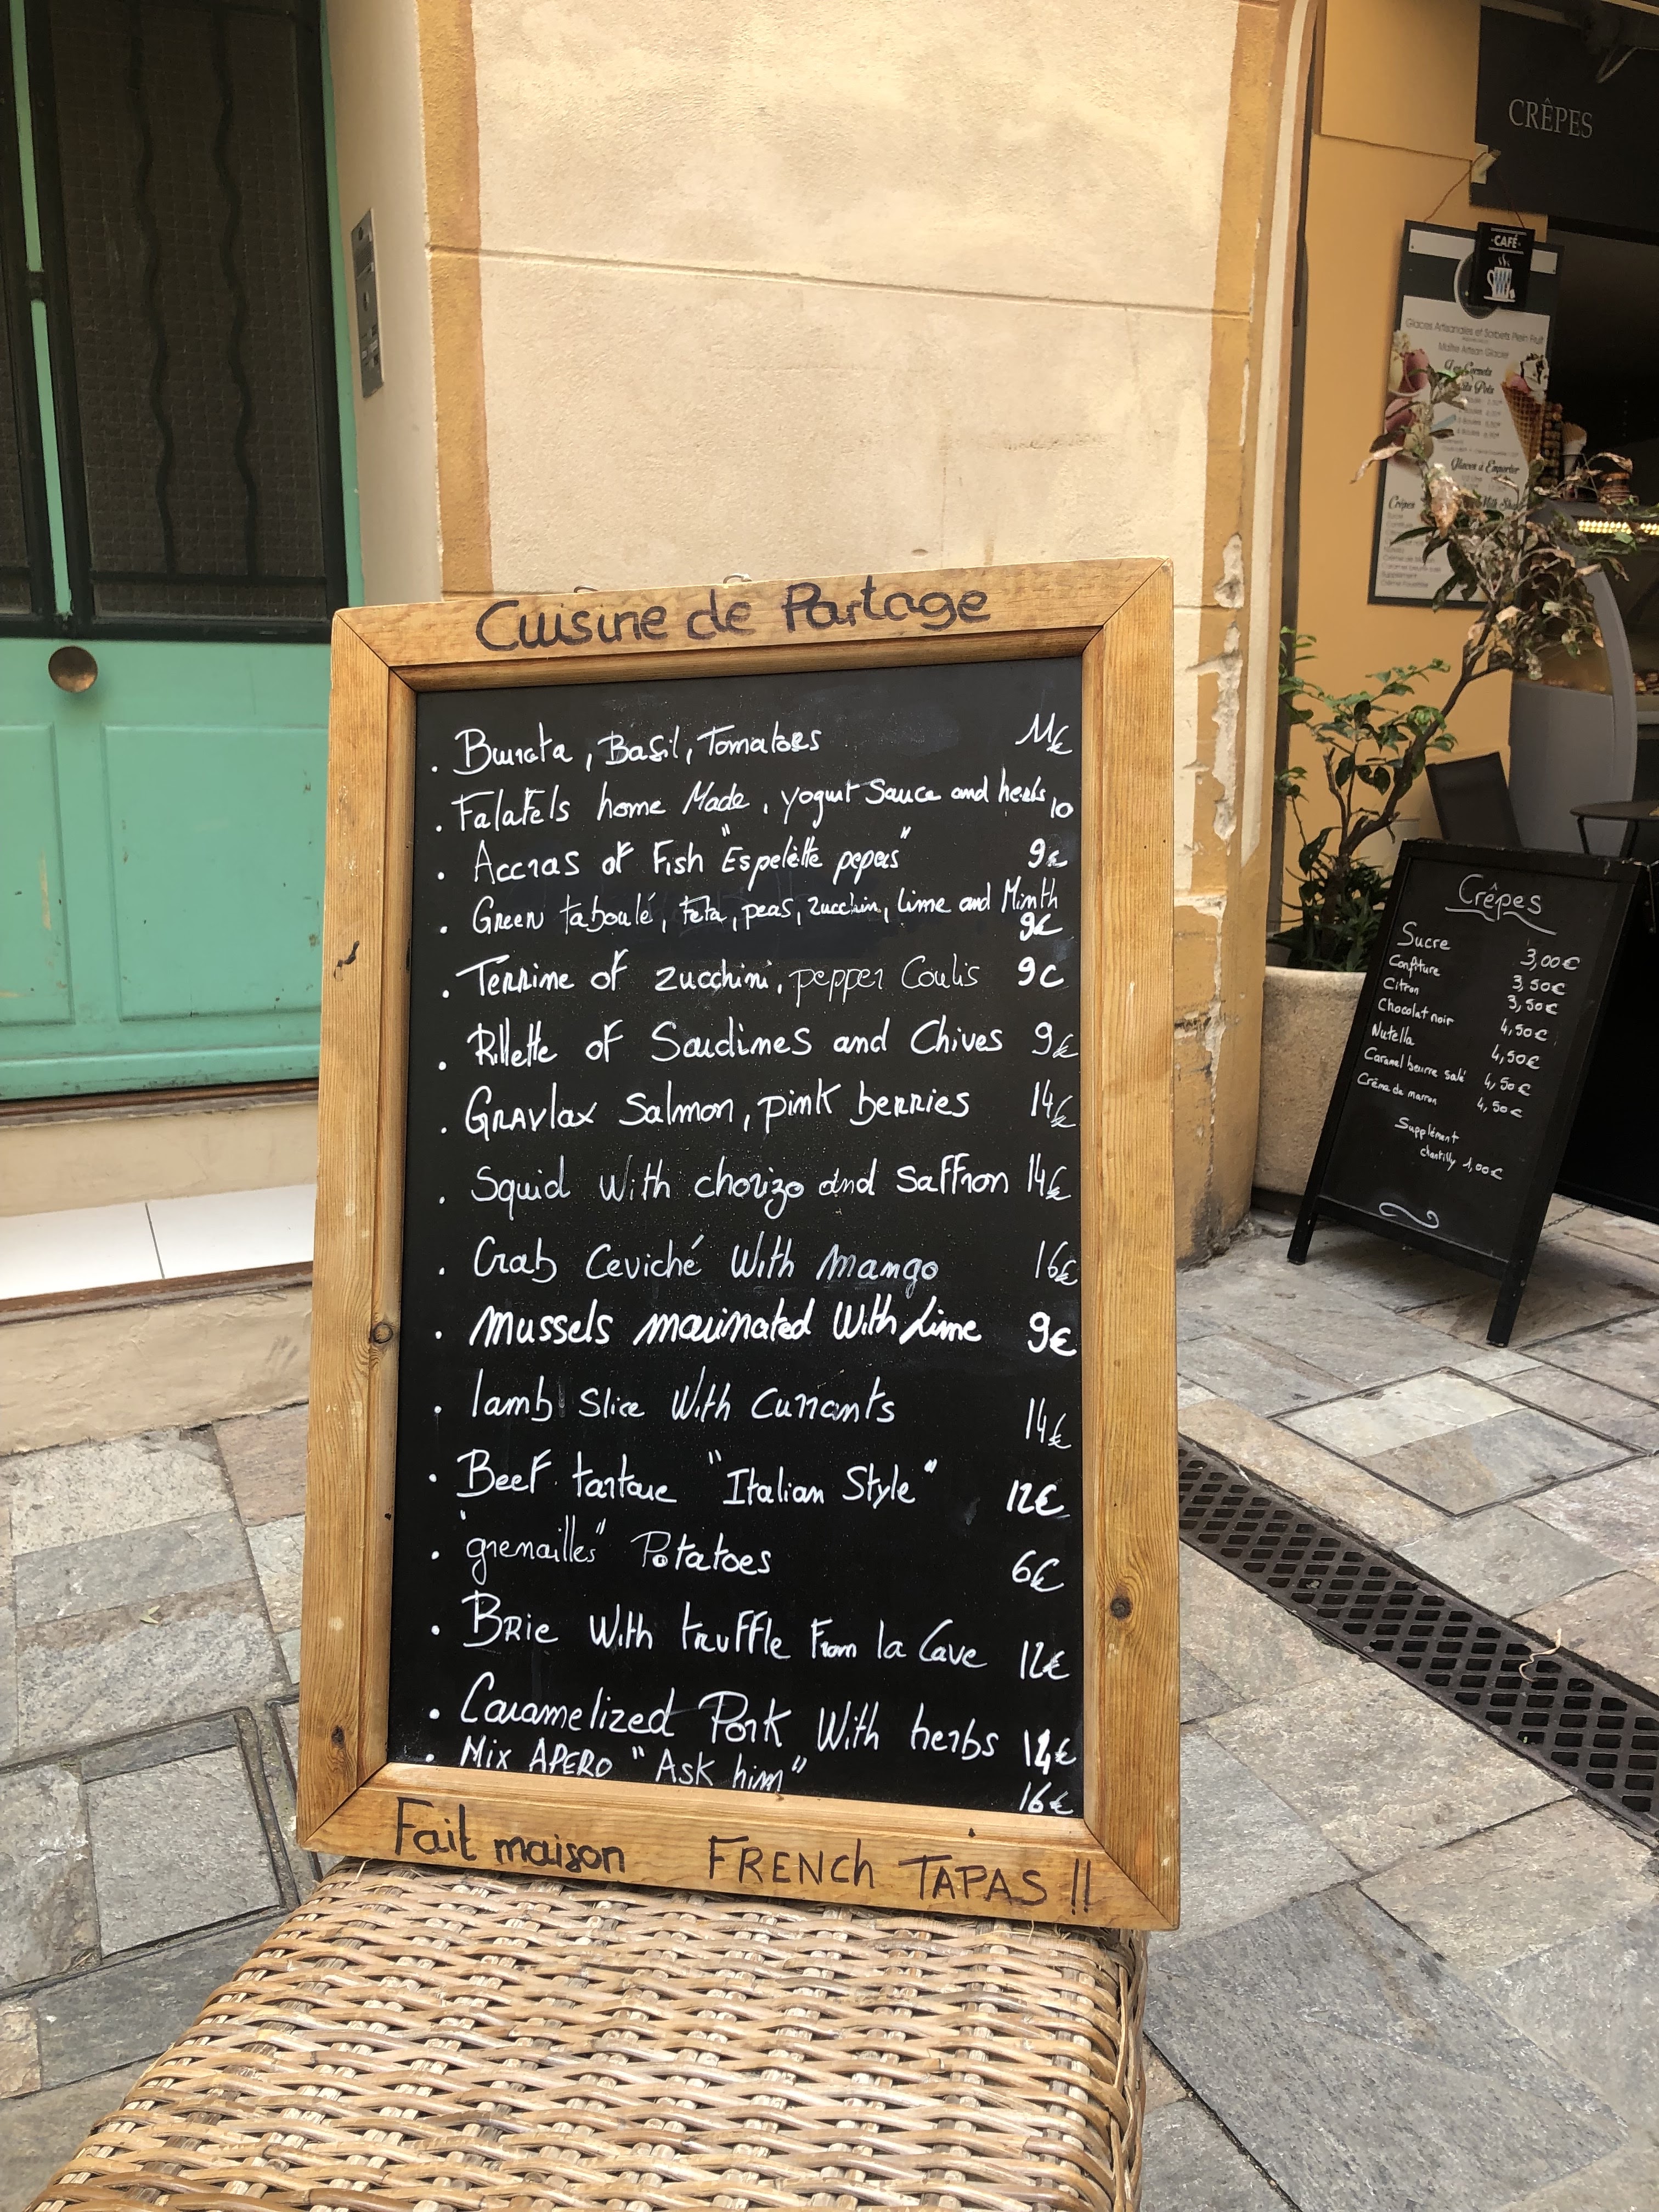 CRÊPES
CAFÉ
Glaces Artisanales et Sorbets Plein Fruit
Maître Artisan Glacier
Glaces à Emporter
Crêpes
Cuisine de Partage
. Burrata, Basil, Tomatoes 11€
. Falafels home Made, yogurt Sauce and herbs 10
. Accras of Fish "Espelette pepers" 9€
. Green taboulé, Feta, peas, zucchin, lime and Minth
9€
. Terrine of zucchini, pepper Coulis 9€
. Rillette of Sardines and Chives 9€
. Gravlax Salmon, pink berries 14€
. Squid With chorizo and Saffron 14€
. Crab Ceviché With Mango 16€
. Mussels marinated With Lime 9€
. lamb Slice With Currants 14€
. Beef tartare "Italian Style" 12€
. "grenailles" Potatoes 6€
. Brie With truffle From la Cave 12€
. Caramelized Pork With herbs 14€
. Mix APERO "Ask him"
16€
Fait maison FRENCh TAPAS !!
Crêpes
Sucre 3,00€
Confiture 3,50€
Citron 3,50€
Chocolat noir 4,50€
Nutella 4,50€
Caramel beurre salé 4,50€
Crème de marron 4,50€
Supplément
chantilly 1,00€